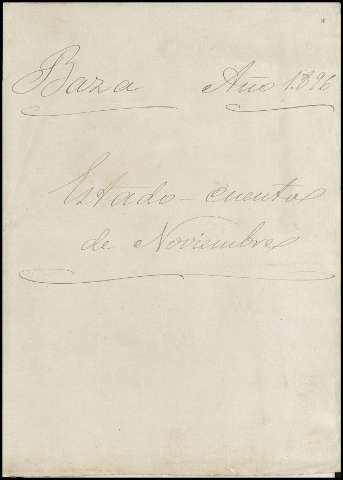 Baza Año 1.896
Estado-cuentas
de Noviembre